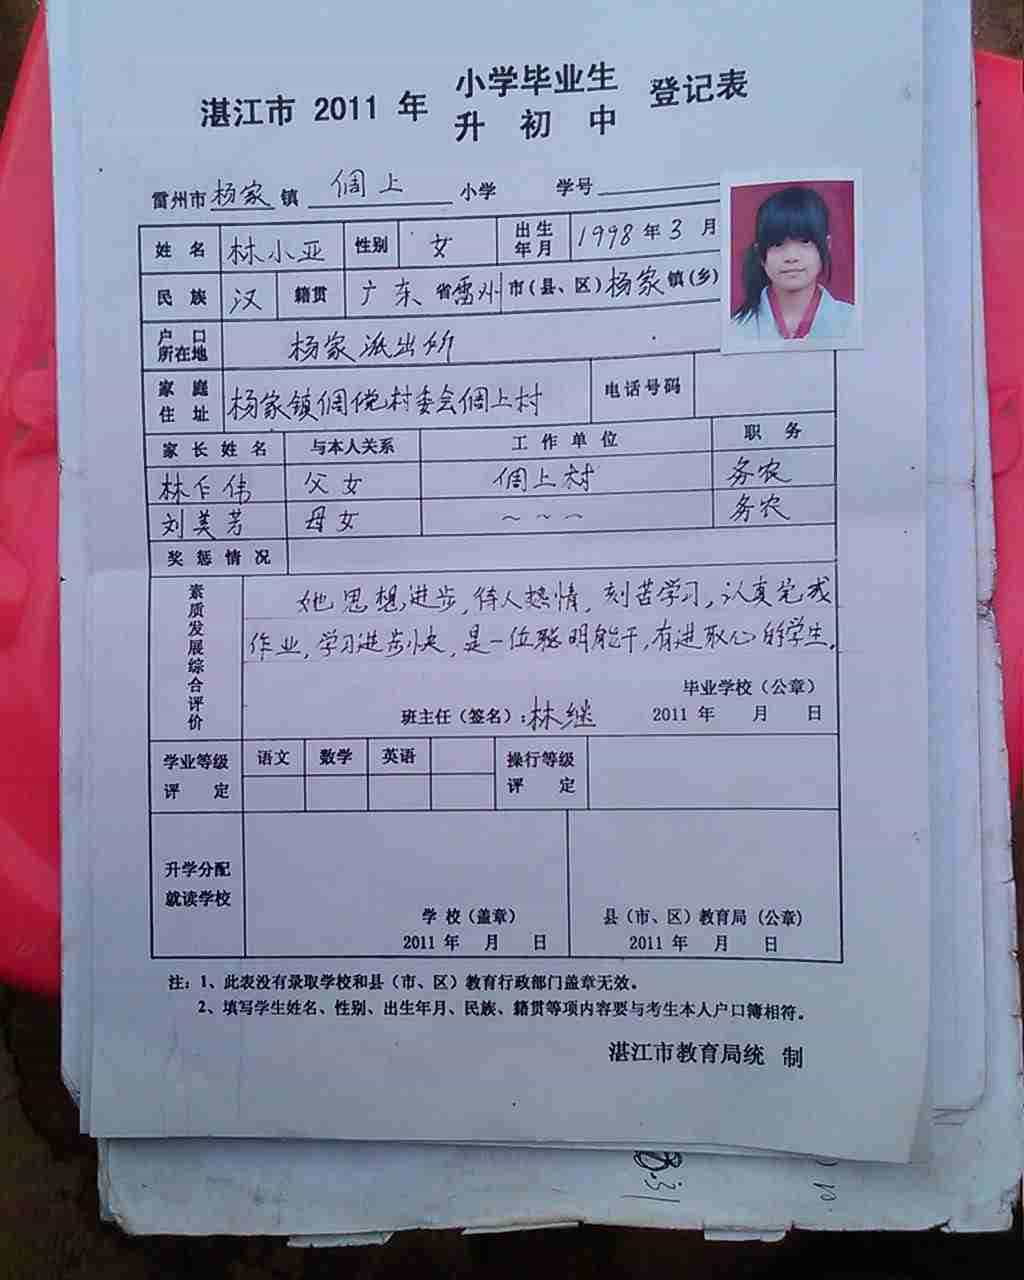 湛江市 2011 年 小学毕业生 登记表
升 初 中
雷州市杨家镇 倜上 小学 学号
姓 名 林小亚 性别 女 出生年月 1998 年 3 月
民 族 汉 籍贯 广东 省雷州市(县、区)杨家镇(乡)
户 口 所在地 杨家派出所
家 庭 住 址 杨家镇倜傥村委会倜上村 电话号码
家 长 姓 名 与本人关系 工 作 单 位 职 务
林 伟 父女 倜上村 务农
刘美芳 母女 ~ ~ ~ 务农
奖 惩 情 况
素质发展综合评价
她思想进步,待人热情,刻苦学习,认真完成
作业,学习进步快,是一位聪明能干,有进取心的学生。
毕业学校(公章)
班主任(签名):林继 2011 年 月 日
学业等级 评 定 语文 数学 英语 操行等级 评 定
升学分配
就读学校
学 校(盖章) 县(市、区)教育局(公章)
2011 年 月 日 2011 年 月 日
注:1、此表没有录取学校和县(市、区)教育行政部门盖章无效。
2、填写学生姓名、性别、出生年月、民族、籍贯等项内容要与考生本人户口簿相符。
湛江市教育局统 制